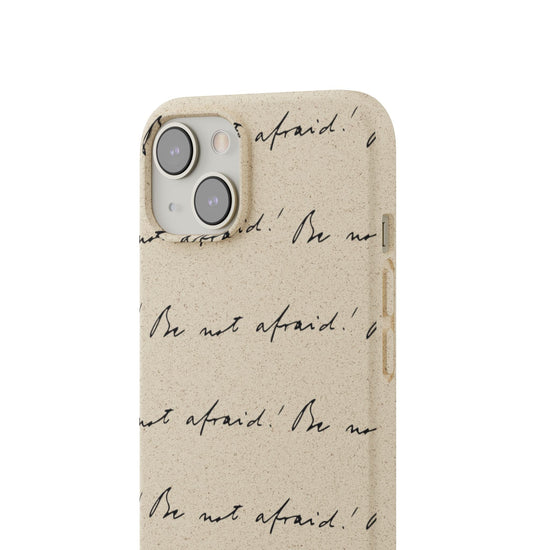 Be not afraid!
not afraid! Be no
! Be not afraid!
not afraid! Be no
! Be not afraid!